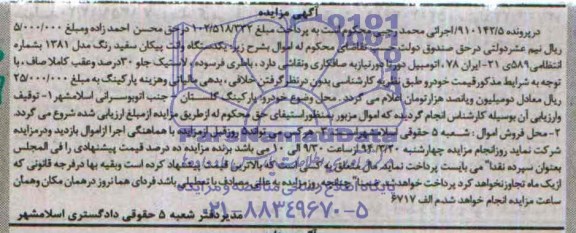 آگهی مزایده
در پرونده ۹۱۰۱۴۲/۵ اجرائی محمد رجبی محکوم است به پرداخت مبلغ ۱۰۲/۵۱۸/۳۳۳ در حق محسن احمد زاده ومبلغ ۵/۰۰۰/۰۰۰
ریال نیم عشر دولتی در حق صندوق دولت تقاضای محکوم له اموال بشرح زیر: یکدستگاه وانت پیکان سفید رنگ مدل ۱۳۸۱ بشماره
انتظامی ۵۸۹ی۲۱- ایران ۷۸، اتومبیل دور تا دور نیاز به صافکاری ونقاشی دارد، باطری فرسوده، لاستیک جلو ۳۰درصد وعقب کاملا صاف، با
توجه به شرایط مذکور قیمت خودرو طبق نظریه کارشناس بدون در نظر گرفتن خلافی، بدهی مالیاتی وهزینه پارکینگ به مبلغ ۲۵/۰۰۰/۰۰۰
ریال معادل دومیلیون وپانصد هزارتومان اعلام می گردد. محل وضوع خودرو: پارکینگ گلستان جنب اتوبوسرانی اسلامشهر ۱- توقیف
وارزیابی آن بوسیله کارشناس انجام گردیده که اموال مزبور بمنظور استیفای حق محکوم له از طریق مزایده از مبلغ ارزیابی شده شروع می گردد.
۲- محل فروش اموال: شعبه ۵ حقوقی اسلامشهر می تواند ۵ روز قبل از مزایده با هماهنگی اجرا از اموال بازدید ودر مزایده
شرکت نماید روز انجام مزایده چهارشنبه ۹۴/۳/۲۰ از ساعت ۹/۳۰ الی ۱۰ می باشد برنده مزایده ده درصد قیمت پیشنهادی را فی المجلس
بعنوان سپرده نقدا" می بایست پرداخت نماید مال متعلق به کسی است که بالاترین قیمت را پیشنهاد کرده است وبقیه بها در فرجه قانونی که
از یک ماه تجاوز نخواهد کرد پرداخت خواهد شد ضمنا" چنانچه روز مزایده به هر دلیلی مصادف با تعطیلی باشد فردای همان روز در همان مکان وهمان
ساعت مزایده انجام خواهد شد م الف ۶۷۱۷
مدیر دفتر شعبه ۵ حقوقی دادگستری اسلامشهر
پایگاه اطلاع رسانی مناقصه ومزایده
۰۲۱-۸۸۳۴۹۶۷۰-۵